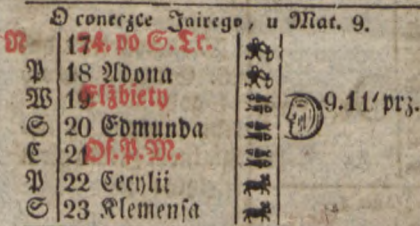 O coreczce Jairego, u Mat. 9.
N 17 24. po S. Tr.
P 18 Adona
W 19 Elżbiety
S 20 Edmunda 9.11' prz.
C 21 Of. P. M.
P 22 Cecylii
S 23 Klemensa